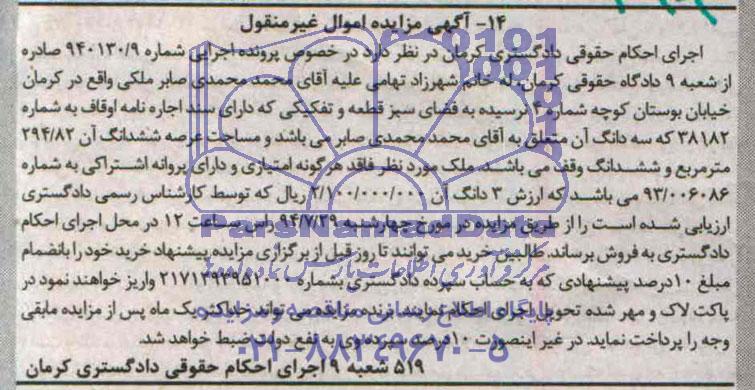 ۱۴- آگهی مزایده اموال غیرمنقول
اجرای احکام حقوقی دادگستری کرمان در نظر دارد در خصوص پرونده اجرایی شماره ۹۴۰۱۳۰/۹ صادره
از شعبه ۹ دادگاه حقوقی کرمان، له خانم شهرزاد تهامی علیه آقای محمد محمدی صابر ملکی واقع در کرمان
خیابان بوستان کوچه شماره ۴ نرسیده به فضای سبز قطعه و تفکیکی که دارای سند اجاره نامه اوقاف به شماره
۳۸۱۸۲ که سه دانگ آن متعلق به آقای محمد محمدی صابر می باشد و مساحت عرصه ششدانگ آن ۲۹۴/۸۲
مترمربع و ششدانگ وقف می باشد. ملک مورد نظر فاقد هرگونه امتیازی و دارای پروانه اشتراکی به شماره
۹۳/۰۰۶۰۸۶ می باشد که ارزش ۳ دانگ آن ۲/۱۰۰/۰۰۰/۰۰۰ ریال که توسط کارشناس رسمی دادگستری
ارزیابی شده است را از طریق مزایده در مورخ چهارشنبه ۹۴/۷/۲۹ راس ساعت ۱۲ در محل اجرای احکام
دادگستری به فروش برساند. طالبین خرید می توانند تا روز قبل از برگزاری مزایده پیشنهاد خرید خود را بانضمام
مبلغ ۱۰درصد پیشنهادی که به حساب سپرده دادگستری بشماره واریز خواهند نمود در
پاکت لاک و مهر شده تحویل اجرای احکام نمایند. برنده مزایده می تواند حداکثر یک ماه پس از مزایده مابقی
وجه را پرداخت نماید. در غیر اینصورت ۱۰درصد سپرده وی به نفع دولت ضبط خواهد شد.
۵۱۹ شعبه ۹ اجرای احکام حقوقی دادگستری کرمان
ParsNamadData
مرکز فرآوری اطلاعات پارس نماد داده ها
پایگاه اطلاع رسانی مناقصه و مزایده
۰۲۱-۸۸۳۴۹۶۷۰-۵